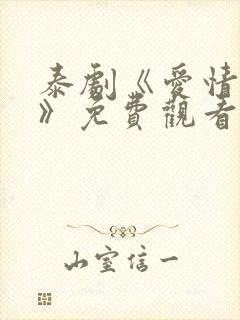 泰劇《愛情
》免費觀看
山室信一